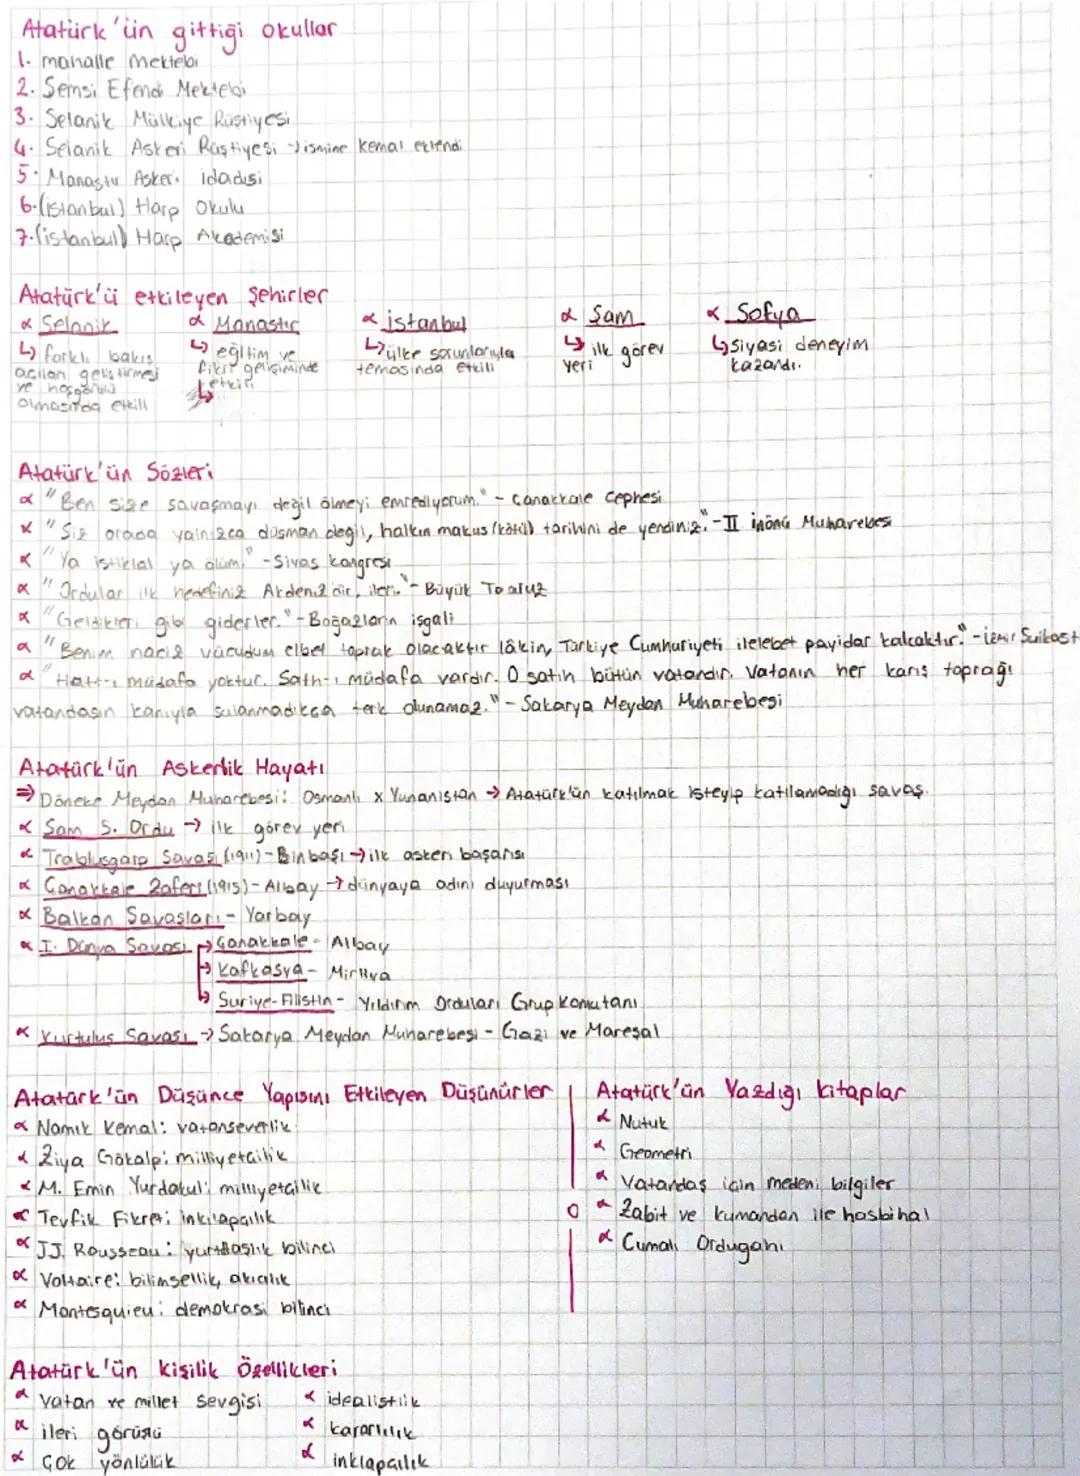 Atatürk'ün gittiği okullar
1. mahalle mektebi
2. Şemsi Efendi Mektebi
3. Selanik Mülkiye Rüştiyesi
4. Selanik Askeri Rüştiyesi → ismine Kemal eklendi
5. Manastır Askeri İdadisi
6. (istanbul) Harp Okulu
7. (istanbul) Harp Akademisi
Atatürk'ü etkileyen Şehirler
α Selanik
↳ farklı bakış
açıları geliştirmesi
ve hoşgörülü
olmasında etkili
α Manastır
↳ eğitim ve
fikir gelişiminde
etkili
α istanbul
↳ ülke sorunlarıyla
temasında etkili
α Şam
↳ ilk görev
yeri
α Sofya
↳ Siyasi deneyim
kazandı.
Atatürk'ün Sözleri
α "Ben size savaşmayı değil ölmeyi emrediyorum." - Çanakkale Cephesi
α "Siz orada yalnızca düşman değil, halkın makus (kötü) tarihini de yendiniz." - II inönü Muharebesi
α "Ya istiklal ya ölüm!" - Sivas kongresi
α "Ordular ilk hedefiniz Akdeniz'dir, ileri." - Büyük Taarruz
α "Geldikleri gibi giderler." - Boğazların işgali
α "Benim naciz vücudum elbet toprak olacaktır lâkin, Türkiye Cumhuriyeti ilelebet payidar kalcaktır." - izmir Suikast
α "Hatt-ı müdafa yoktur. Sath-ı müdafa vardır. O satıh bütün vatandır. Vatanın her karış toprağı
vatandaşın kanıyla sulanmadıkça terk olunamaz." - Sakarya Meydan Muharebesi
Atatürk'ün Askerlik Hayatı
⇒ Döneke Meydan Muharebesi: Osmanlı x Yunanistan → Atatürk'ün katılmak isteyip katılamadığı savaş.
α Şam 5. Ordu → ilk görev yeri
α Trablusgarp Savaşı (1911) - Binbaşı → ilk askeri başarısı
α Çanakkale Zaferi (1915) - Albay → dünyaya adını duyurması
α Balkan Savaşları - Yarbay
α I. Dünya Savaşı → Çanakkale - Albay
→ Kafkasya - Mirliva
↳ Suriye-Filistin - Yıldırım Orduları Grup Komutanı
α Kurtuluş Savaşı → Sakarya Meydan Muharebesi - Gazi ve Mareşal
Atatürk'ün Düşünce Yapısını Etkileyen Düşünürler
α Namık Kemal: vatanseverlik
α Ziya Gökalp: milliyetçilik
α M. Emin Yurdakul: milliyetçilik
α Tevfik Fikret: inkılapçılık
α J.J. Rousseau: yurttaşlık bilinci
α Voltaire: bilimsellik, akılcılık
α Montesquieu: demokrasi bilinci
Atatürk'ün Yazdığı kitaplar
α Nutuk
α Geometri
α Vatandaş için medeni bilgiler
α Zabit ve kumandan ile hasbihal
α Cumalı Ordugahı
Atatürk'ün kişilik Özellikleri
α Vatan ve millet sevgisi
α ileri görüşlü
α Çok yönlülük
α idealistlik
α kararlılık
α inklapçılık